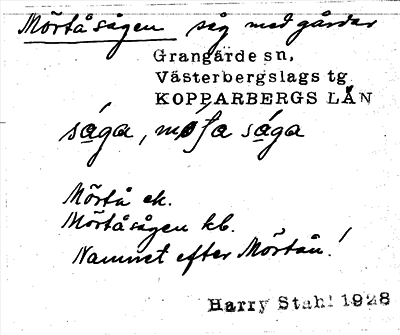 Mörtåsågen såg med gårdar
Grangärde sn,
Västerbergslags tg
KOPPARBERGS LÄN
sága, sága
Mörtå ek.
Mörtåsågen kb.
Namnet efter Mörtån!
Harry Stahl 1928